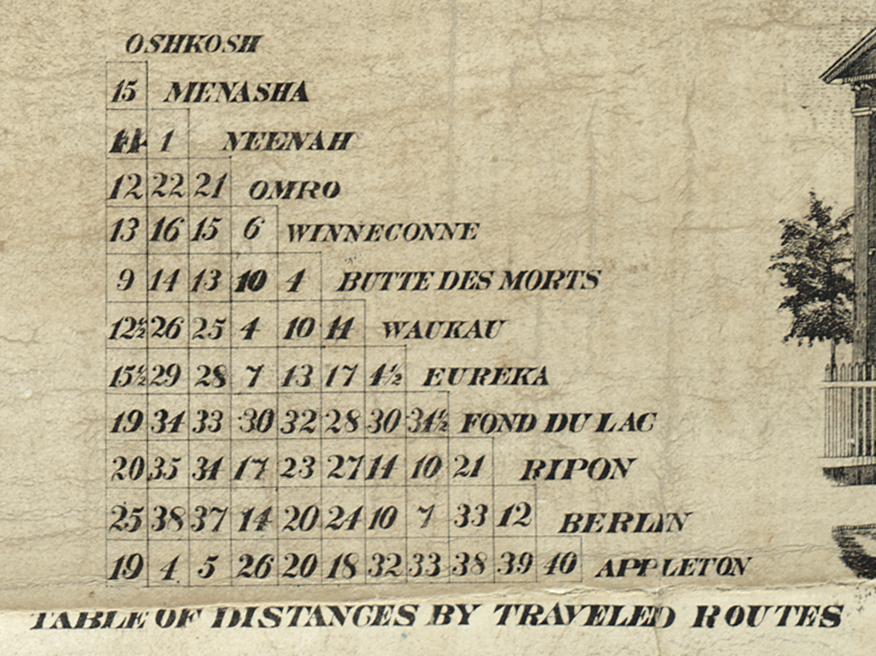 OSHKOSH
15 MENASHA
14 1 NEENAH
12 22 21 OMRO
13 16 15 6 WINNECONNE
9 14 13 10 4 BUTTE DES MORTS
12½ 26 25 4 10 14 WAUKAU
15½ 29 28 7 13 17 4½ EUREKA
19 34 33 30 32 28 30 34½ FOND DU LAC
20 35 34 17 23 27 14 10 21 RIPON
25 38 37 14 20 24 10 7 33 12 BERLIN
19 4 5 26 20 18 32 33 38 39 40 APPLETON
TABLE OF DISTANCES BY TRAVELED ROUTES